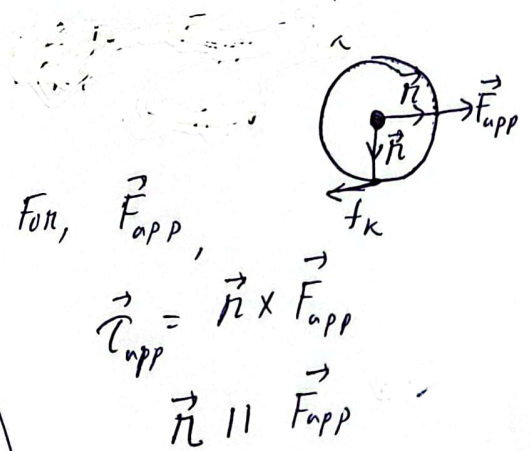 r⃗
F⃗app
r⃗
fk
For, F⃗app,
τ⃗app = r⃗ × F⃗app
r⃗ || F⃗app